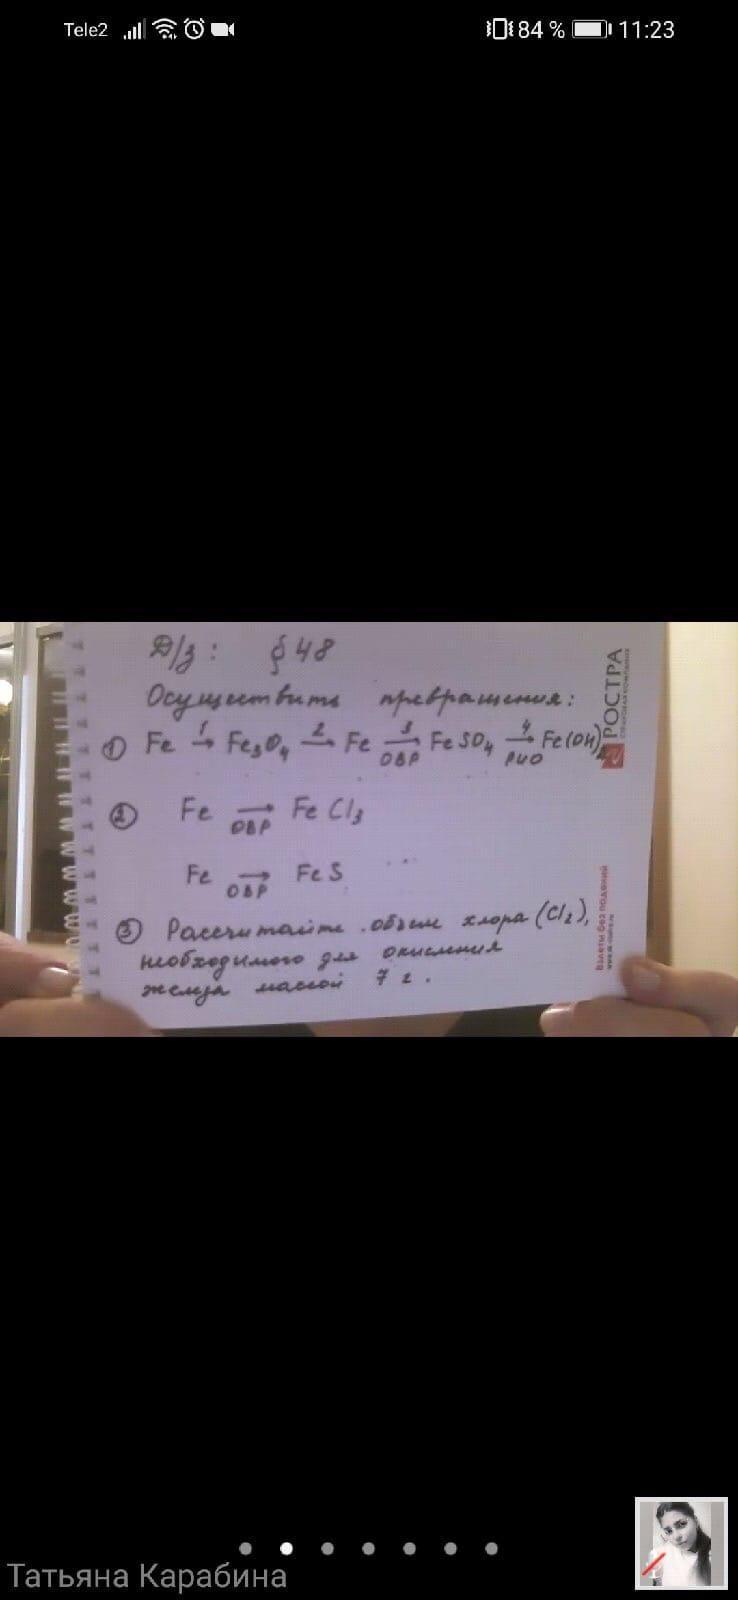 Tele2 84 % 11:23
Д/з: § 48
Осуществить превращения:
① Fe 1→ Fe₃O₄ 2→ Fe 3→ ОВР FeSO₄ 4→ РИО Fe(OH)₂
② Fe → ОВР FeCl₃
Fe → ОВР FeS
③ Рассчитайте объем хлора (Cl₂),
необходимого для окисления
железа массой 7 г.
РОСТРА
СТРАХОВАЯ КОМПАНИЯ
Взлеты без падений
Татьяна Карабина